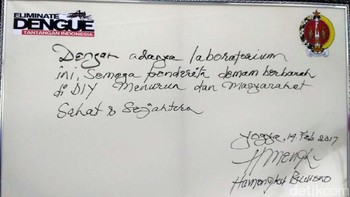 ELIMINATE
DENGUE
TANTANGAN INDONESIA
Dengan adanya laboratorium
ini, Semoga penderita demam berdarah
di DIY Menurun dan Masyarakat
Sehat & Sejahtera
Yogya, 19 Feb 2017
Hamengku Buwono
detikcom